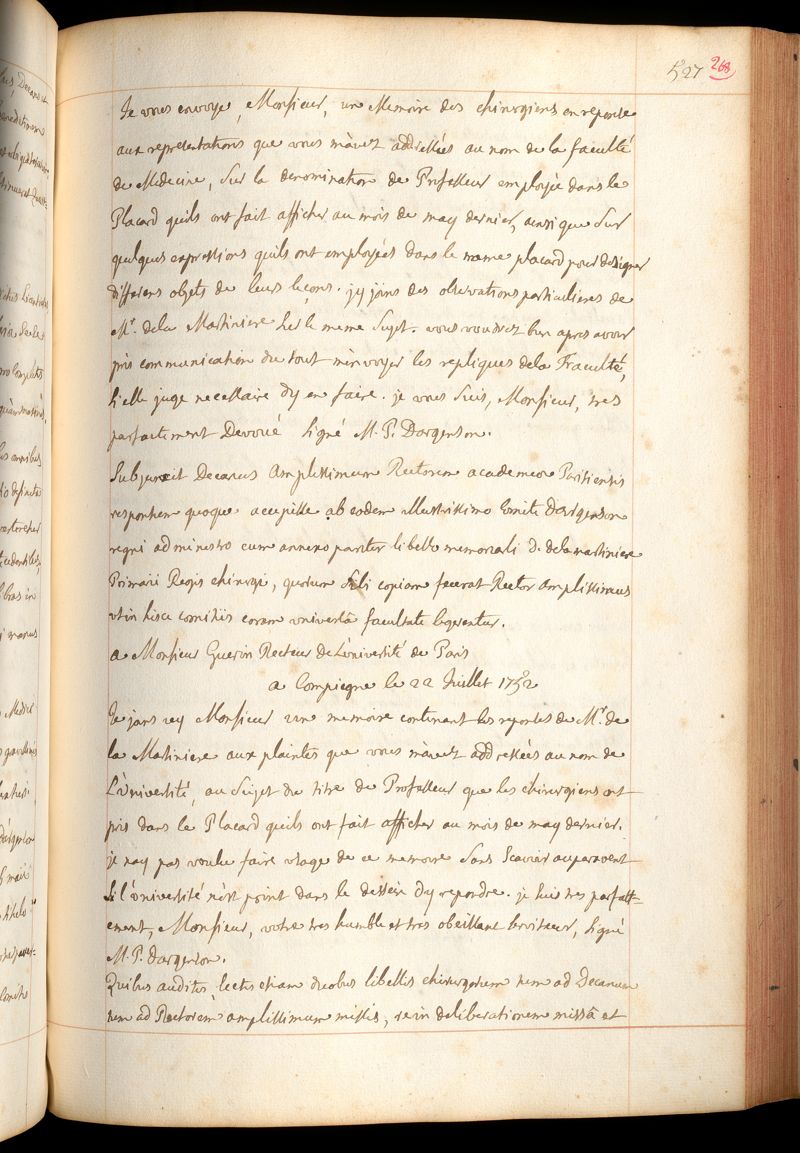 527 268
Je vous envoye, Monsieur, un Memoire des chirurgiens en reponse
aux representations que vous m'avez addressées au nom de la faculté
de Medecine, sur la denomination de Professeur employée dans le
Placard quils ont fait afficher au mois de may dernier, ainsi que sur
quelques expressions quils ont employées dans le meme placard pour designer
differens objets de leurs leçons. jy joins des observations particulieres de
Mr. dela Martiniere sur le meme sujet. vous voudrez bien apres avoir
pris communication du tout m'envoyer les repliques dela Faculté,
si elle juge necessaire dy en faire. je vous suis, Monsieur, tres
parfaitement Devoué signé M. P. Dargenson.
Subjunxit Decanus amplissimum Rectorem academiae Parisiensis
responsum quoque accepisse ab eodem illustrissimo Comite d'argenson
regni administro cum annexo pariter libello memoriali D. dela martiniere
Primarii Regis chirurgi, quorum sibi copiam fecerat Rector amplissimus
ut in hisce comitiis coram universâ facultate legerentur.
a Monsieur Guerin Recteur de L'université de Paris
a Compiegne le 22 Juillet 1752
Je joins icy Monsieur un memoire contenant les reponses de Mr. de
la Martiniere aux plaintes que vous m'avez addressées au nom de
L'université, au sujet du titre de Professeur que les chirurgiens ont
pris dans le Placard quils ont fait afficher au mois de may dernier.
je nay pas voulu faire usage de ce memoire sans scavoir auparavent
si l'université n'est point dans le dessein dy repondre. je suis tres parfait-
ement, Monsieur, votre tres humble et tres obeissant serviteur, signé
M. P. dargenson.
Quibus auditis, lectis etiam duobus libellis chirurgorum tum ad Decanum
tum ad Rectorem amplissimum missis, re in deliberationem missâ et